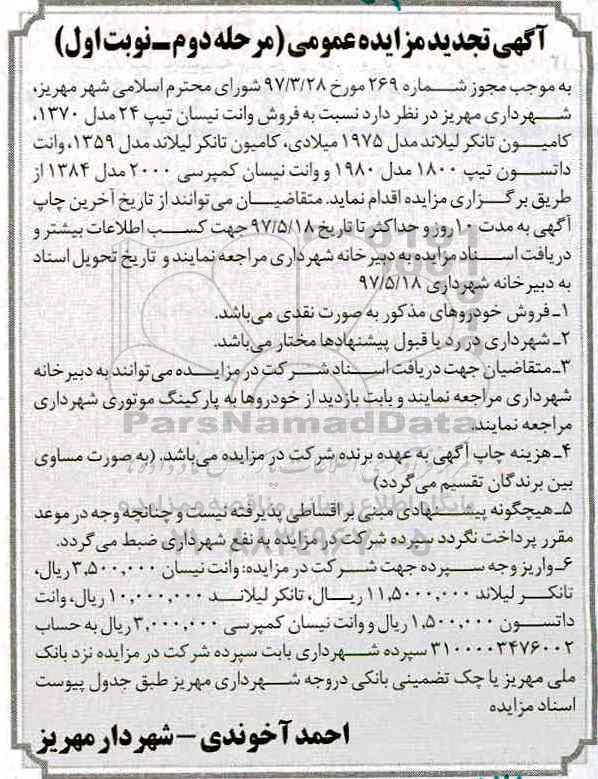 آگهی تجدید مزایده عمومی (مرحله دوم ـ نوبت اول)
به موجب مجوز شماره ۲۶۹ مورخ ۹۷/۳/۲۸ شورای محترم اسلامی شهر مهریز،
شهرداری مهریز در نظر دارد نسبت به فروش وانت نیسان تیپ ۲۴ مدل ۱۳۷۰،
کامیون تانکر لیلاند مدل ۱۹۷۵ میلادی، کامیون تانکر لیلاند مدل ۱۳۵۹، وانت
داتسون تیپ ۱۸۰۰ مدل ۱۹۸۰ و وانت نیسان کمپرسی ۲۰۰۰ مدل ۱۳۸۴ از
طریق برگزاری مزایده اقدام نماید. متقاضیان می‌توانند از تاریخ آخرین چاپ
آگهی به مدت ۱۰ روز و حداکثر تا تاریخ ۹۷/۵/۱۸ جهت کسب اطلاعات بیشتر و
دریافت اسناد مزایده به دبیرخانه شهرداری مراجعه نمایند و تاریخ تحویل اسناد
به دبیرخانه شهرداری ۹۷/۵/۱۸
۱ـ فروش خودروهای مذکور به صورت نقدی می‌باشد.
۲ـ شهرداری در رد یا قبول پیشنهادها مختار می‌باشد.
۳ـ متقاضیان جهت دریافت اسناد شرکت در مزایده می‌توانند به دبیرخانه
شهرداری مراجعه نمایند و بابت بازدید از خودروها به پارکینگ موتوری شهرداری
مراجعه نمایند.
ParsNamadData
۴ـ هزینه چاپ آگهی به عهده برنده شرکت در مزایده می‌باشد. (به صورت مساوی
بین برندگان تقسیم می‌گردد)
۵ـ هیچگونه پیشنهادی مبنی بر اقساطی پذیرفته نیست و چنانچه وجه در موعد
مقرر پرداخت نگردد سپرده شرکت در مزایده به نفع شهرداری ضبط می‌گردد.
۶ـ واریز وجه سپرده جهت شرکت در مزایده: وانت نیسان ۳,۵۰۰,۰۰۰ ریال،
تانکر لیلاند ۱۱,۵۰۰۰,۰۰۰ ریال، تانکر لیلاند ۱۰,۰۰۰,۰۰۰ ریال، وانت
داتسون ۱,۵۰۰,۰۰۰ ریال و وانت نیسان کمپرسی ۳,۰۰۰,۰۰۰ ریال به حساب
۳۱۰۰۰۰۳۴۷۶۰۰۲ سپرده شهرداری بابت سپرده شرکت در مزایده نزد بانک
ملی مهریز یا چک تضمینی بانکی در وجه شهرداری مهریز طبق جدول پیوست
اسناد مزایده
احمد آخوندی – شهردار مهریز